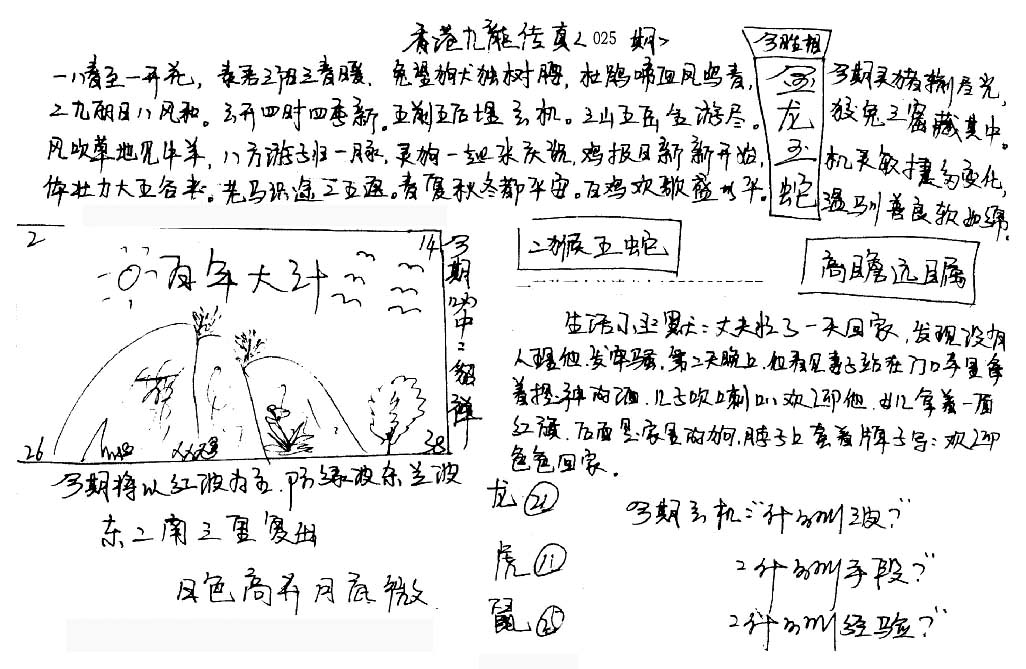 香港九龍传真<025 期>
一八春至一开花，春君三阳三春暖，兔望狗犬独树腾，杜鹃啼血风鸣春，
二九朋日八风和。云开四时四季新。五前五后埋玄机。三山五岳金游尽。
风吹草地见牛羊，八方游子归一脉，灵狗一起来庆祝，鸡报日新新开始，
体壮力大五谷来。老马识途二五返。春夏秋冬都平安。百鸡欢歌盛世平。
今期肖相
龙
蛇
今期灵猪
狡兔三窟藏其中。
机灵敏捷多变化，
温驯善良软如绵。
2
14
百年大计
26
38
今期必中：貂蝉
二猴五蛇
高瞻远瞩
生活小笑默：丈夫忙了一天回家，发现没有
人理他，发牢骚，第二天晚上，他看见妻子站在门口手里拿
着提神的酒，儿子吹口喇叭欢迎他，女儿拿着一面
红旗，后面是家里的狗，脖子上套着牌子写：欢迎
爸爸回家。
今期将以红波为主，防绿波杀兰波
东二南三里复出
日色高升月底微
龙 21
虎 11
鼠 25
今期玄机："什么叫波？"
"什么叫手段？"
"什么叫经验？"